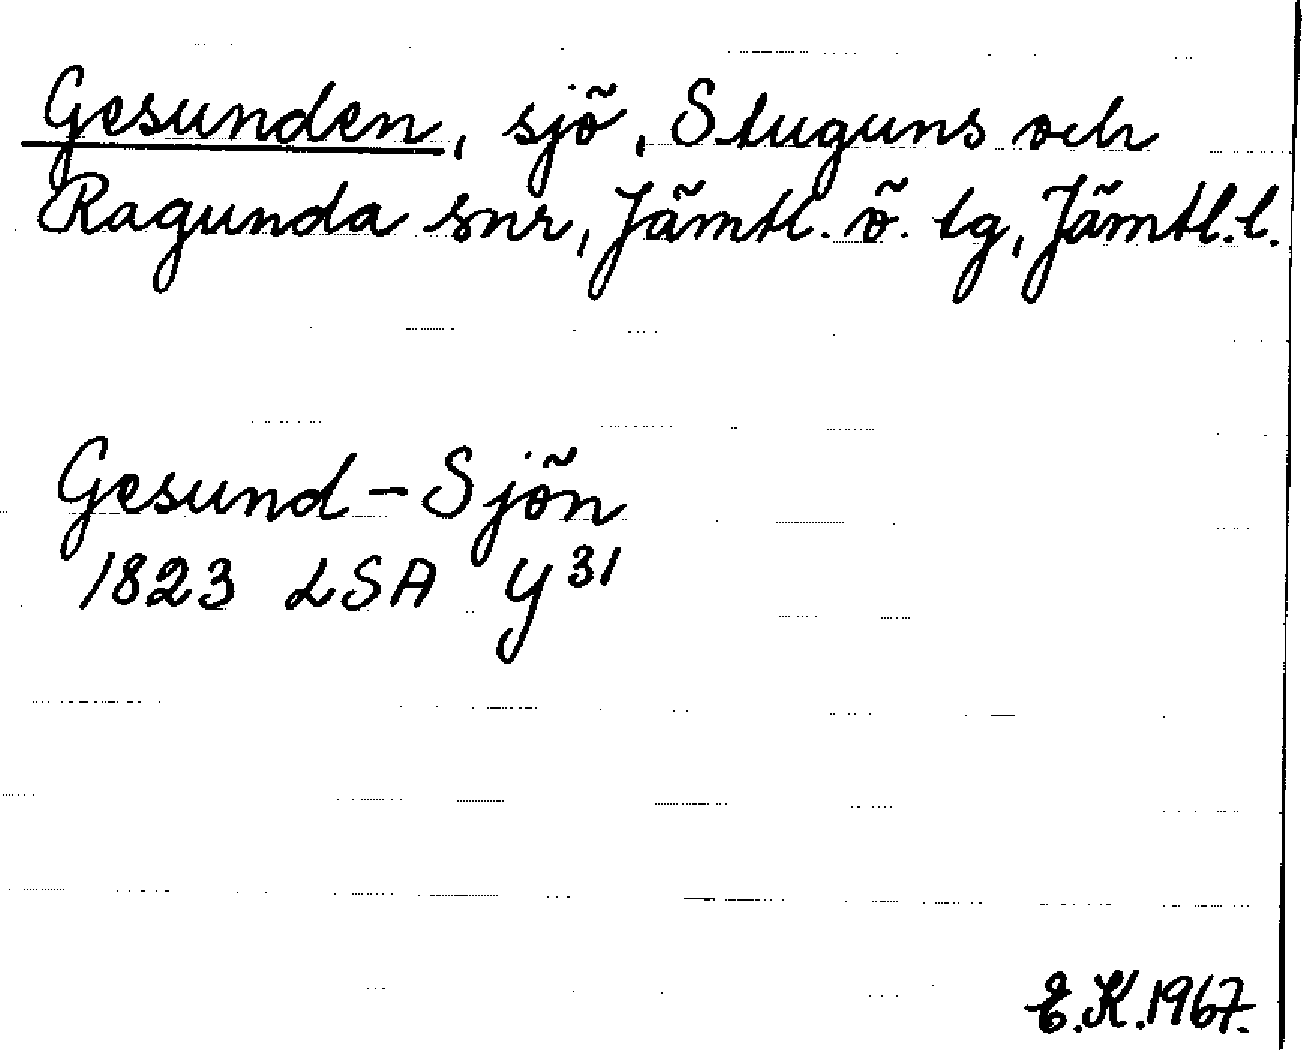 Gesunden, sjö, Stuguns och
Ragunda snr, Jämtl. ö. tg, Jämtl. l.
Gesund-Sjön
1823 LSA Y31
E.K. 1967.